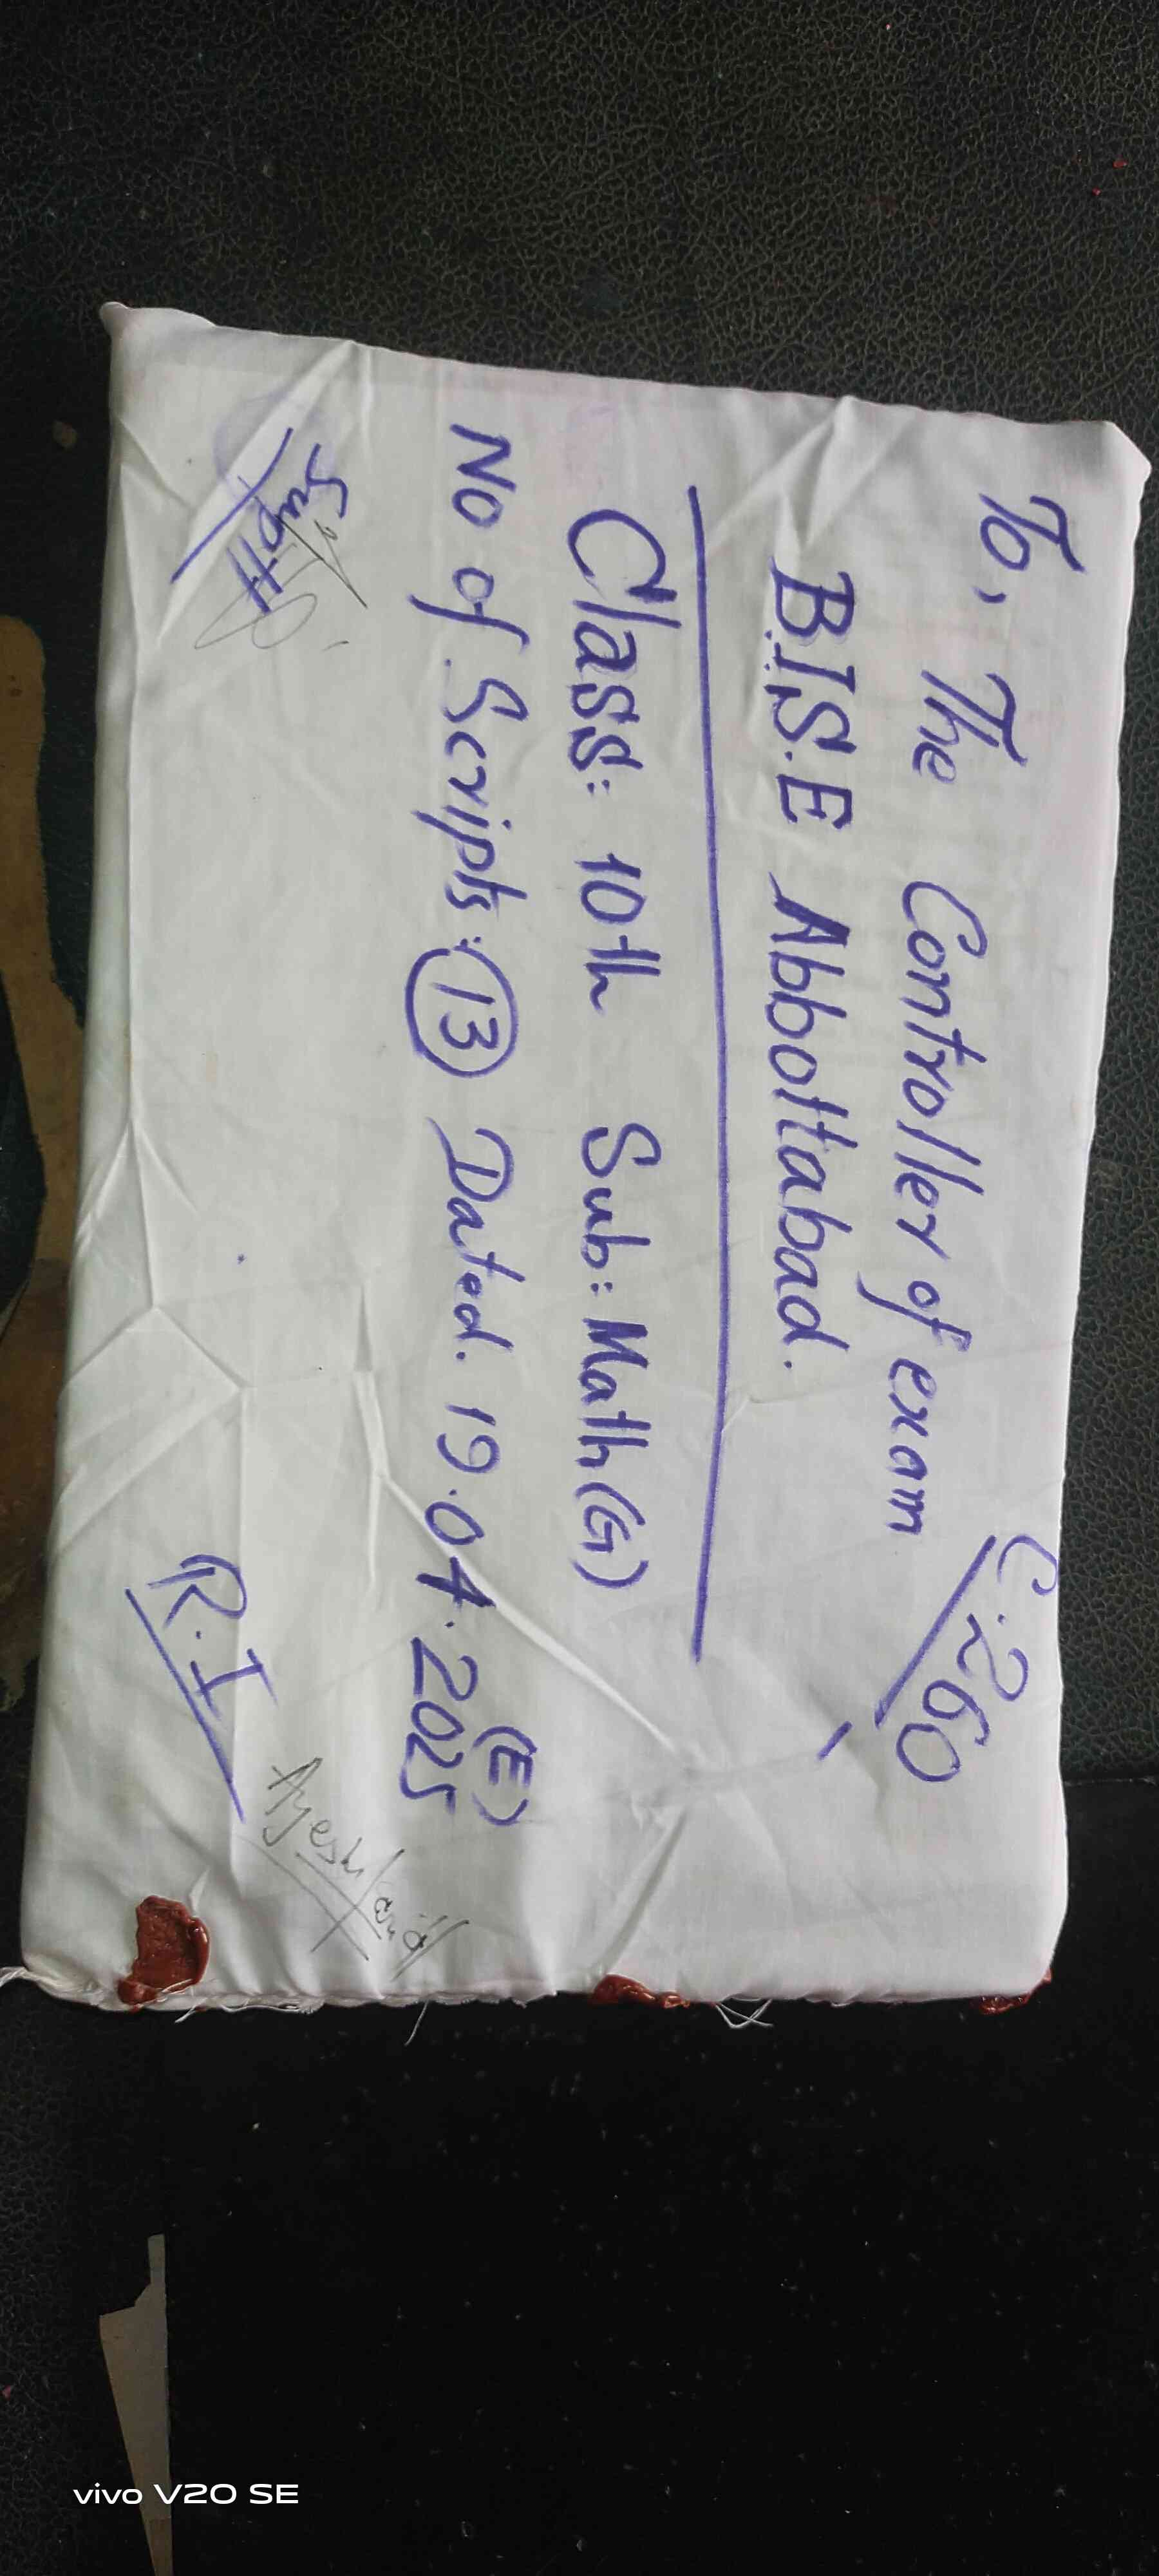 C.260
To, The Controller of exam
B.I.S.E Abbottabad.
Class: 10th Sub: Math (G)
No of Scripts: 13 Dated. 19.04.2025 (E)
Supdt
R.I
vivo V20 SE